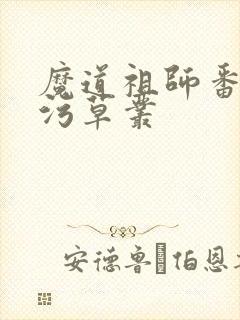 魔道祖師番
污草叢
安德鲁 伯恩